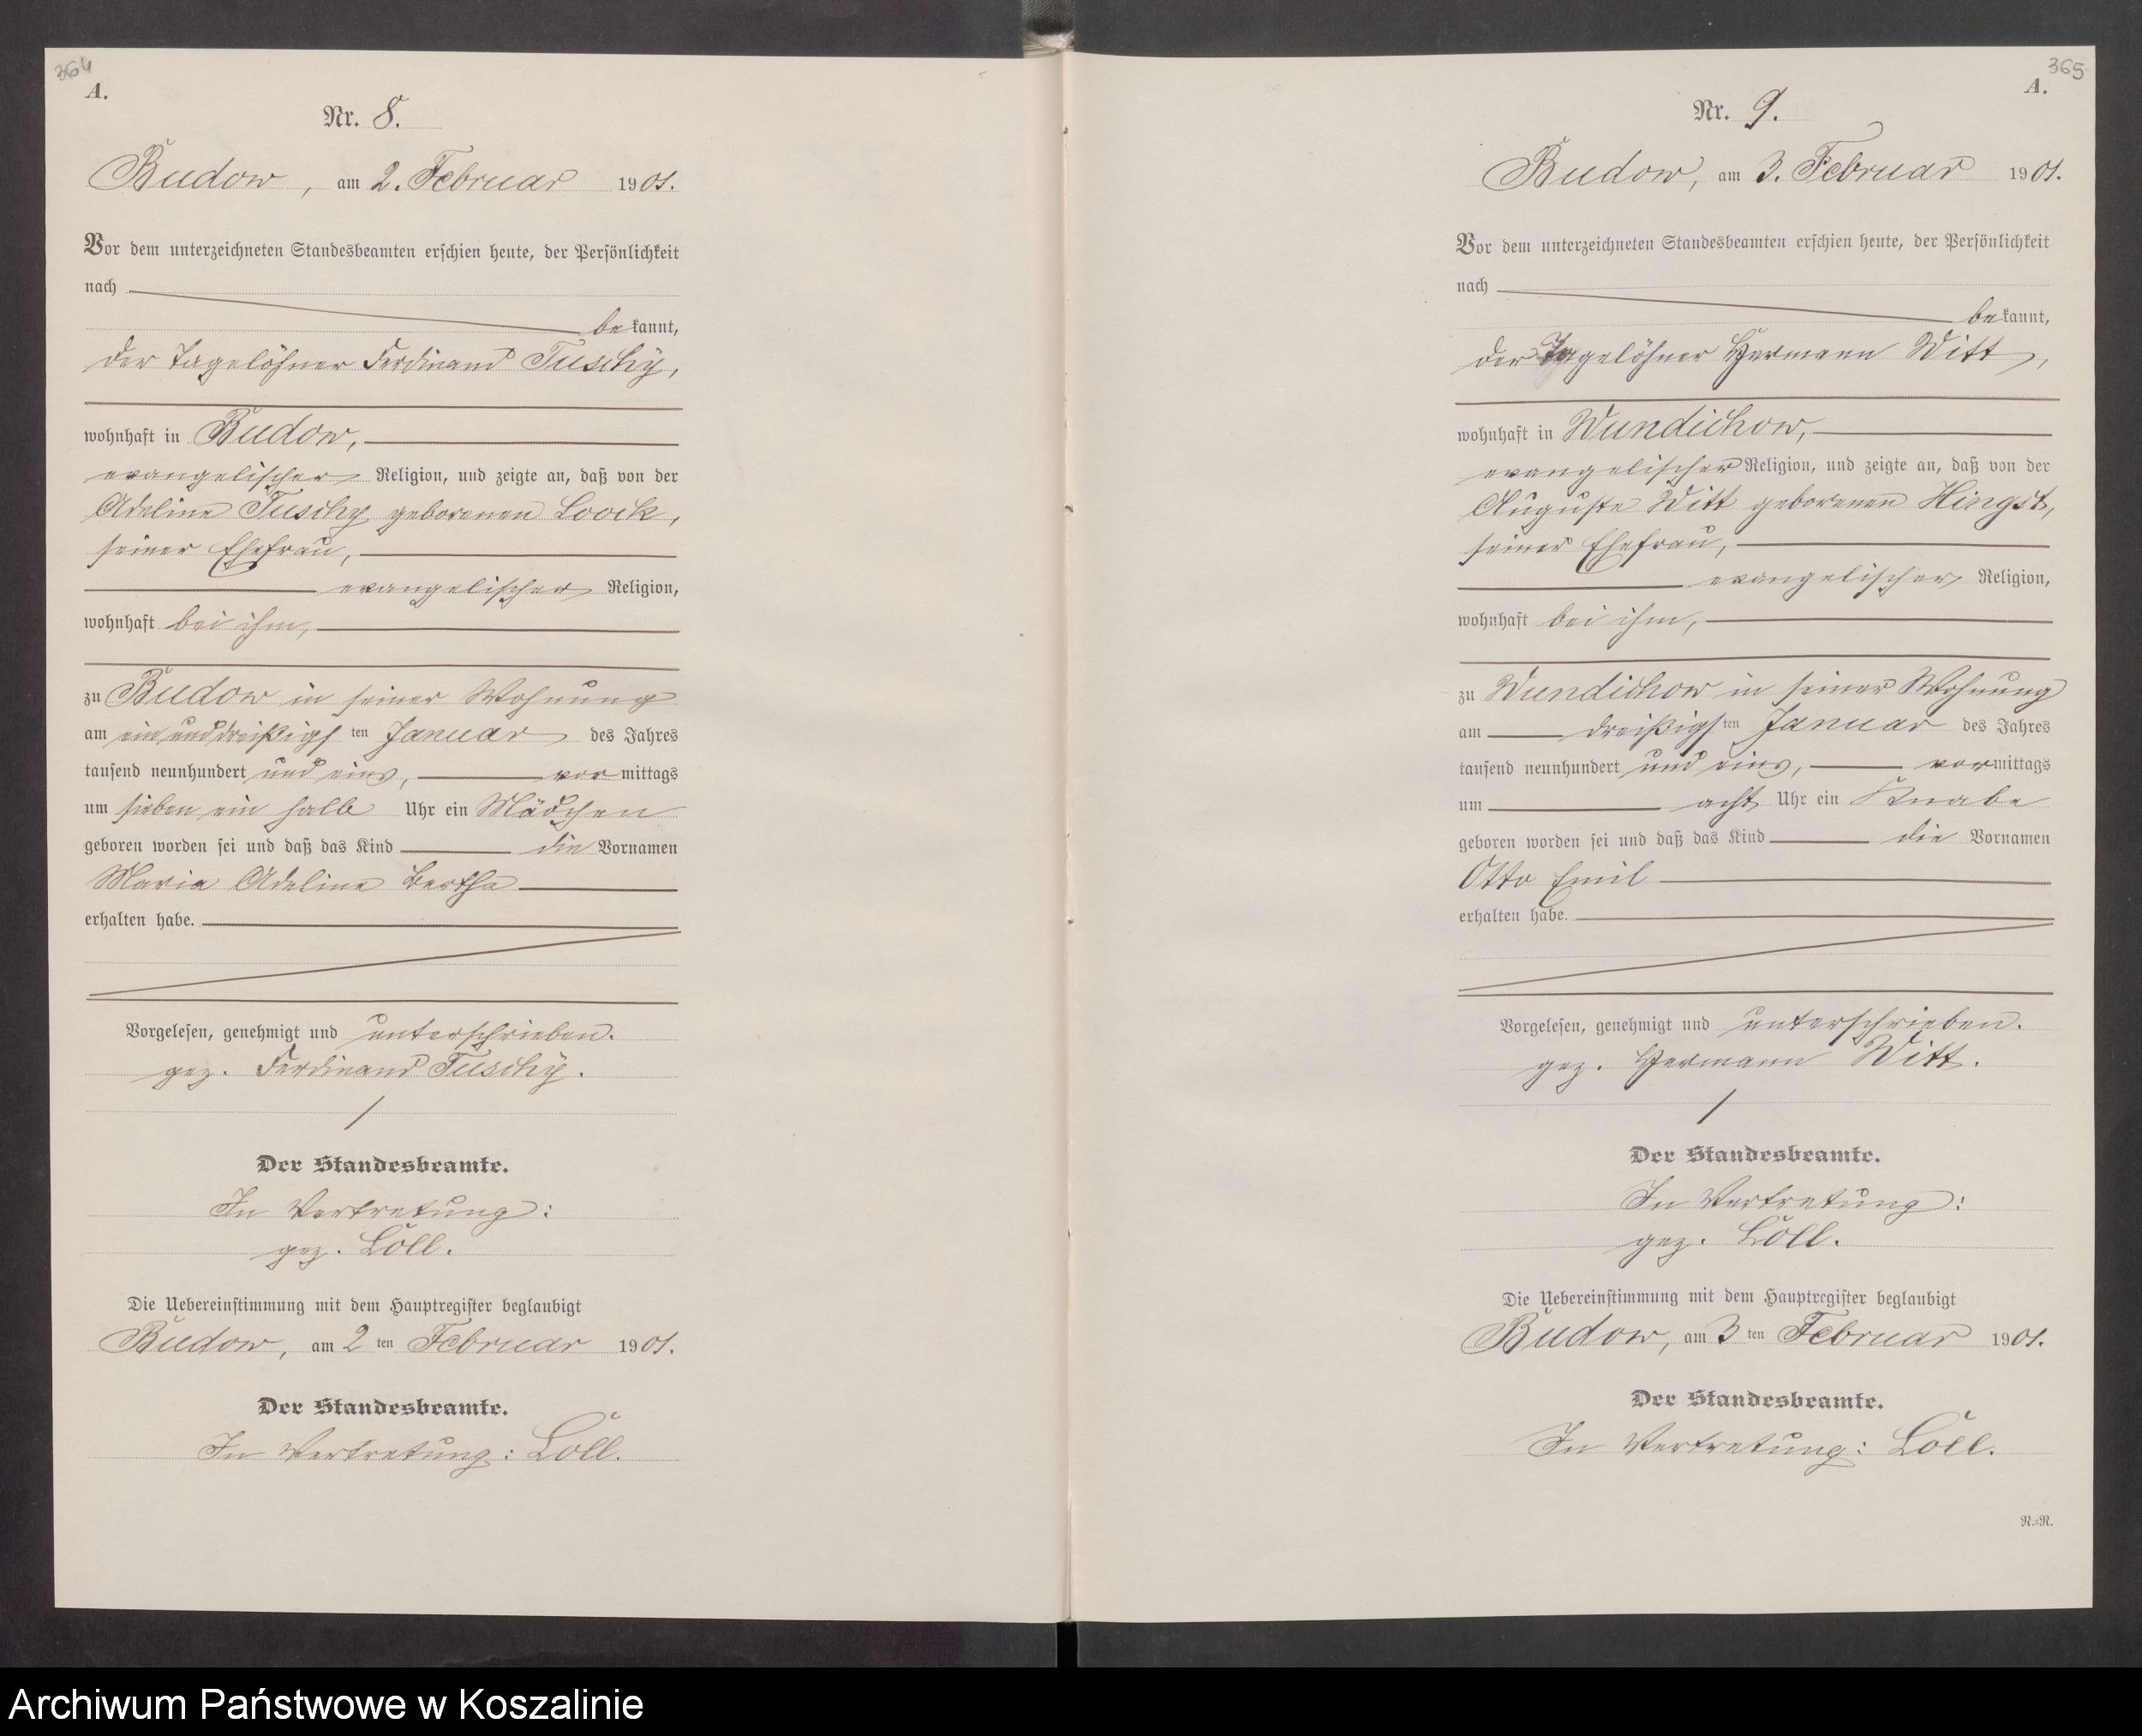 364
A.
Nr. 8.
Budow, am 2. Februar 1901.
Vor dem unterzeichneten Standesbeamten erschien heute, der Persönlichkeit
nach
bekannt,
der Tagelöhner Ferdinand Tuschy,
wohnhaft in Budow,
evangelischer Religion, und zeigte an, daß von der
Adeline Tuschy geborenen Loock,
seiner Ehefrau,
evangelischer Religion,
wohnhaft bei ihm,
zu Budow in seiner Wohnung
am ein und dreißigsten Januar des Jahres
tausend neunhundert und eins, vormittags
um sieben ein halb Uhr ein Mädchen
geboren worden sei und daß das Kind die Vornamen
Maria Adeline Bertha
erhalten habe.
Vorgelesen, genehmigt und unterschrieben.
gez. Ferdinand Tuschy.
Der Standesbeamte.
In Vertretung:
gez. Löll.
Die Uebereinstimmung mit dem Hauptregister beglaubigt
Budow, am 2 ten Februar 1901.
Der Standesbeamte.
In Vertretung: Löll.
365
A.
Nr. 9.
Budow, am 3. Februar 1901.
Vor dem unterzeichneten Standesbeamten erschien heute, der Persönlichkeit
nach
bekannt,
der Tagelöhner Hermann Witt,
wohnhaft in Wundichow,
evangelischer Religion, und zeigte an, daß von der
Auguste Witt geborenen Hingst,
seiner Ehefrau,
evangelischer Religion,
wohnhaft bei ihm,
zu Wundichow in seiner Wohnung
am dreißigsten Januar des Jahres
tausend neunhundert und eins, vormittags
um acht Uhr ein Knabe
geboren worden sei und daß das Kind die Vornamen
Otto Emil
erhalten habe.
Vorgelesen, genehmigt und unterschrieben.
gez. Hermann Witt.
Der Standesbeamte.
In Vertretung:
gez. Löll.
Die Uebereinstimmung mit dem Hauptregister beglaubigt
Budow, am 3 ten Februar 1901.
Der Standesbeamte.
In Vertretung: Löll.
R.=R.
Archiwum Państwowe w Koszalinie